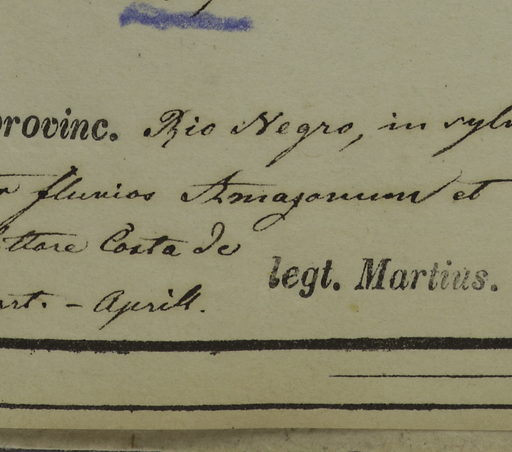 provinc. Rio Negro, in sylv
fluvios Amazonum et
littore Costa de
legt. Martius.
art. - Aprill.